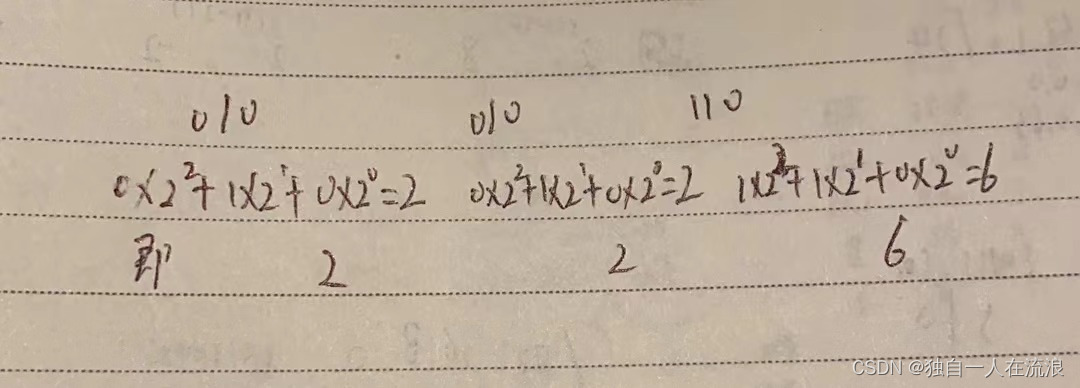 010 010 110
0×2²+1×2¹+0×2⁰=2 0×2²+1×2¹+0×2⁰=2 1×2²+1×2¹+0×2⁰=6
即 2 2 6
CSDN @独自一人在流浪